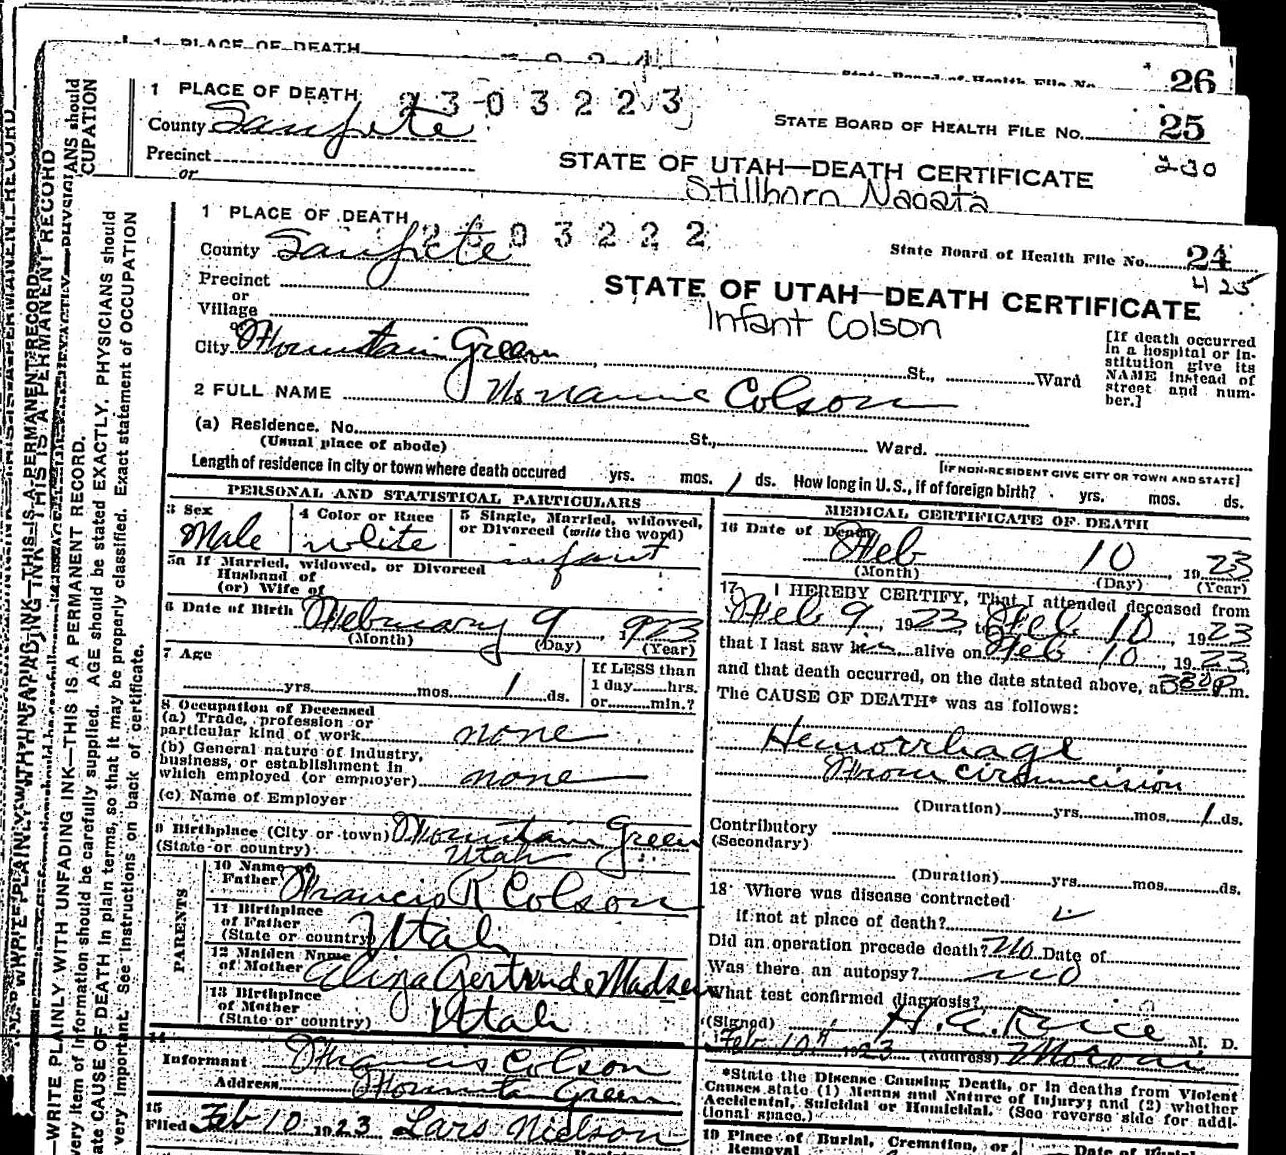 1 PLACE OF DEATH
26
1 PLACE OF DEATH 2303223
County Sanpete
STATE BOARD OF HEALTH FILE NO. 25
Precinct
or
STATE OF UTAH—DEATH CERTIFICATE
230
Stillborn Nagata
1 PLACE OF DEATH 2303222
County Sanpete
State Board of Health File No. 24
425
Precinct
or
Village
or
STATE OF UTAH—DEATH CERTIFICATE
Infant Colson
City Mountain Green St., Ward
[If death occurred
in a hospital or in-
stitution give its
NAME instead of
street and num-
ber.]
2 FULL NAME No name Colson
(a) Residence. No. St., Ward.
(Usual place of abode)
[IF NON-RESIDENT GIVE CITY OR TOWN AND STATE]
Length of residence in city or town where death occured yrs. mos. 1 ds. How long in U.S., if of foreign birth? yrs. mos. ds.
PERSONAL AND STATISTICAL PARTICULARS
3 Sex
Male
4 Color or Race
white
5 Single, Married, widowed,
or Divorced (write the word)
infant
5a If Married, widowed, or Divorced
Husband of
(or) Wife of
6 Date of Birth February 9, 1923
(Month) (Day) (Year)
7 Age
yrs. mos. 1 ds.
If LESS than
1 day hrs.
or min.?
8 Occupation of Deceased
(a) Trade, profession or
particular kind of work none
(b) General nature of industry,
business, or establishment in
which employed (or employer) none
(c) Name of Employer
9 Birthplace (City or town) Mountain Green
(State or country) Utah
PARENTS
10 Name of
Father Francis R Colson
11 Birthplace
of Father
(State or country) Utah
12 Maiden Name
of Mother Eliza Gertrude Madsen
13 Birthplace
of Mother
(State or country) Utah
14
Informant Francis Colson
Address Mountn Green
15
Filed Feb 10 1923 Lars Nielson
MEDICAL CERTIFICATE OF DEATH
16 Date of Death Feb 10, 1923
(Month) (Day) (Year)
17 I HEREBY CERTIFY, That I attended deceased from
Feb 9, 1923, to Feb 10, 1923
that I last saw him alive on Feb 10, 1923,
and that death occurred, on the date stated above, at 330 P.m.
The CAUSE OF DEATH* was as follows:
Hemorrhage
From circumcision
(Duration) yrs. mos. 1 ds.
Contributory
(Secondary)
(Duration) yrs. mos. ds.
18 Where was disease contracted
if not at place of death?
Did an operation precede death? No Date of
Was there an autopsy? no
What test confirmed diagnosis?
(Signed) H. A. Rice M. D.
Feb 10th 1923 (Address) Moroni
*State the Disease Causing Death, or in deaths from Violent
Causes state (1) Means and Nature of Injury; and (2) whether
Accidental, Suicidal or Homicidal. (See reverse side for addi-
tional space.)
19 Place of Burial, Cremation, or
Removal
WRITE PLAINLY WITH UNFADING INK—THIS IS A PERMANENT RECORD.
very item of information should be carefully supplied. AGE should be stated EXACTLY. PHYSICIANS should
ate CAUSE OF DEATH in plain terms, so that it may be properly classified. Exact statement of OCCUPATION
very important. See instructions on back of certificate.